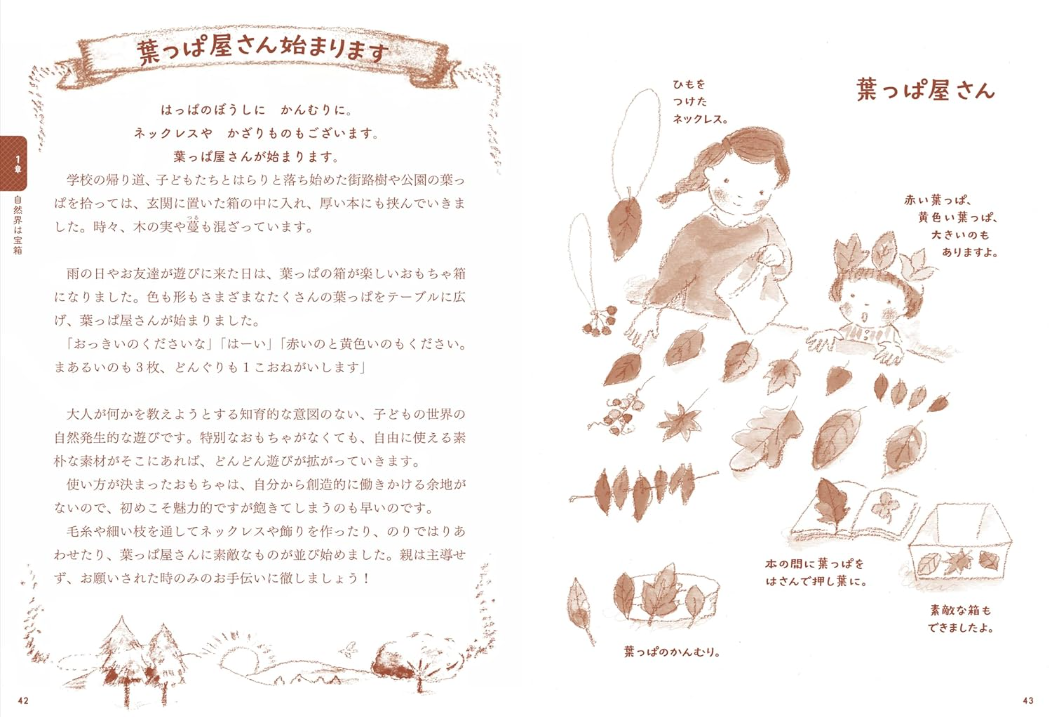 葉っぱ屋さん始まります
はっぱのぼうしに　かんむりに。
ネックレスや　かざりものもございます。
葉っぱ屋さんが始まります。
学校の帰り道、子どもたちとはらりと落ち始めた街路樹や公園の葉っ
ぱを拾っては、玄関に置いた箱の中に入れ、厚い本にも挟んでいきま
した。時々、木の実や蔓も混ざっています。
雨の日やお友達が遊びに来た日は、葉っぱの箱が楽しいおもちゃ箱
になりました。色も形もさまざまなたくさんの葉っぱをテーブルに広
げ、葉っぱ屋さんが始まりました。
「おっきいのくださいな」「はーい」「赤いのと黄色いのもください。
まあるいのも3枚、どんぐりも1こおねがいします」
大人が何かを教えようとする知育的な意図のない、子どもの世界の
自然発生的な遊びです。特別なおもちゃがなくても、自由に使える素
朴な素材がそこにあれば、どんどん遊びが拡がっていきます。
使い方が決まったおもちゃは、自分から創造的に働きかける余地が
ないので、初めこそ魅力的ですが飽きてしまうのも早いのです。
毛糸や細い枝を通してネックレスや飾りを作ったり、のりではりあ
わせたり、葉っぱ屋さんに素敵なものが並び始めました。親は主導せ
ず、お願いされた時のみのお手伝いに徹しましょう！
1章
自然界は宝箱
42
葉っぱ屋さん
ひもを
つけた
ネックレス。
赤い葉っぱ、
黄色い葉っぱ、
大きいのも
ありますよ。
本の間に葉っぱを
はさんで押し葉に。
素敵な箱も
できましたよ。
葉っぱのかんむり。
43